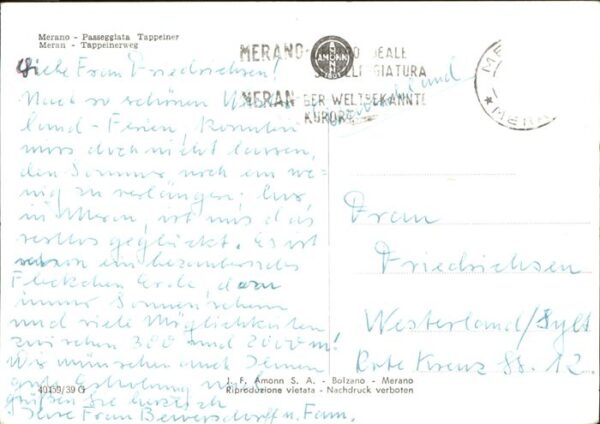 Merano - Passeggiata Tappeiner
Meran - Tappeinerweg
Liebe Frau Friedrichsen!
Nach so schönen
land-Ferien, konnten
wir's doch nicht lassen,
den Sommer noch ein we-
nig zu verlängern; hier,
in Meran, ist uns das
restlos geglückt. Es ist
schon ein bezauberndes
Fleckchen Erde, dazu
immer Sonnenschein
und viele Möglichkeiten
zwischen 300 und 2000 m!
Wir wünschen auch Ihnen
gute Erholung und
grüßen Sie herzlich
Ihre Frau Bewersdorff u. Fam.
MERANO IDEALE
AMONN
MERAN DER WELTBEKANNTE
KURORT
MERA
Frau
Friedrichsen
Westerland/Sylt
Rote Kreuz St. 12
40139/39 G
J. F. Amonn S. A. - Bolzano - Merano
Riproduzione vietata - Nachdruck verboten